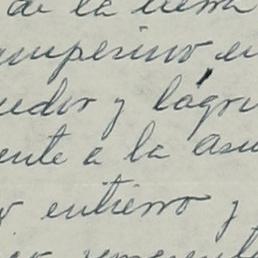 de la tierra
ampesino, en
udor y lágri
ente a la asu
entierro y